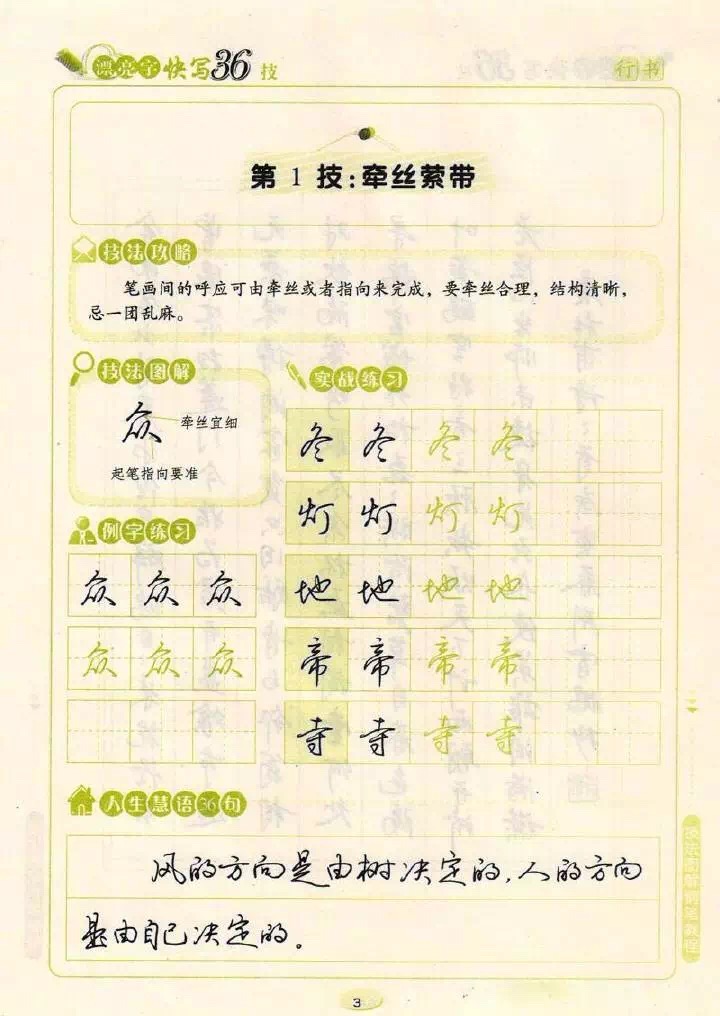 漂亮字快写36技
行书
第1技:牵丝萦带
技法攻略
笔画间的呼应可由牵丝或者指向来完成，要牵丝合理，结构清晰，
忌一团乱麻。
技法图解
众
牵丝宜细
起笔指向要准
例字练习
众众众
众众众
实战练习
冬冬冬冬
灯灯灯灯
地地地地
帝帝帝帝
寺寺寺寺
人生慧语36句
风的方向是由树决定的,人的方向
是由自己决定的。
技法图解钢笔教程
3